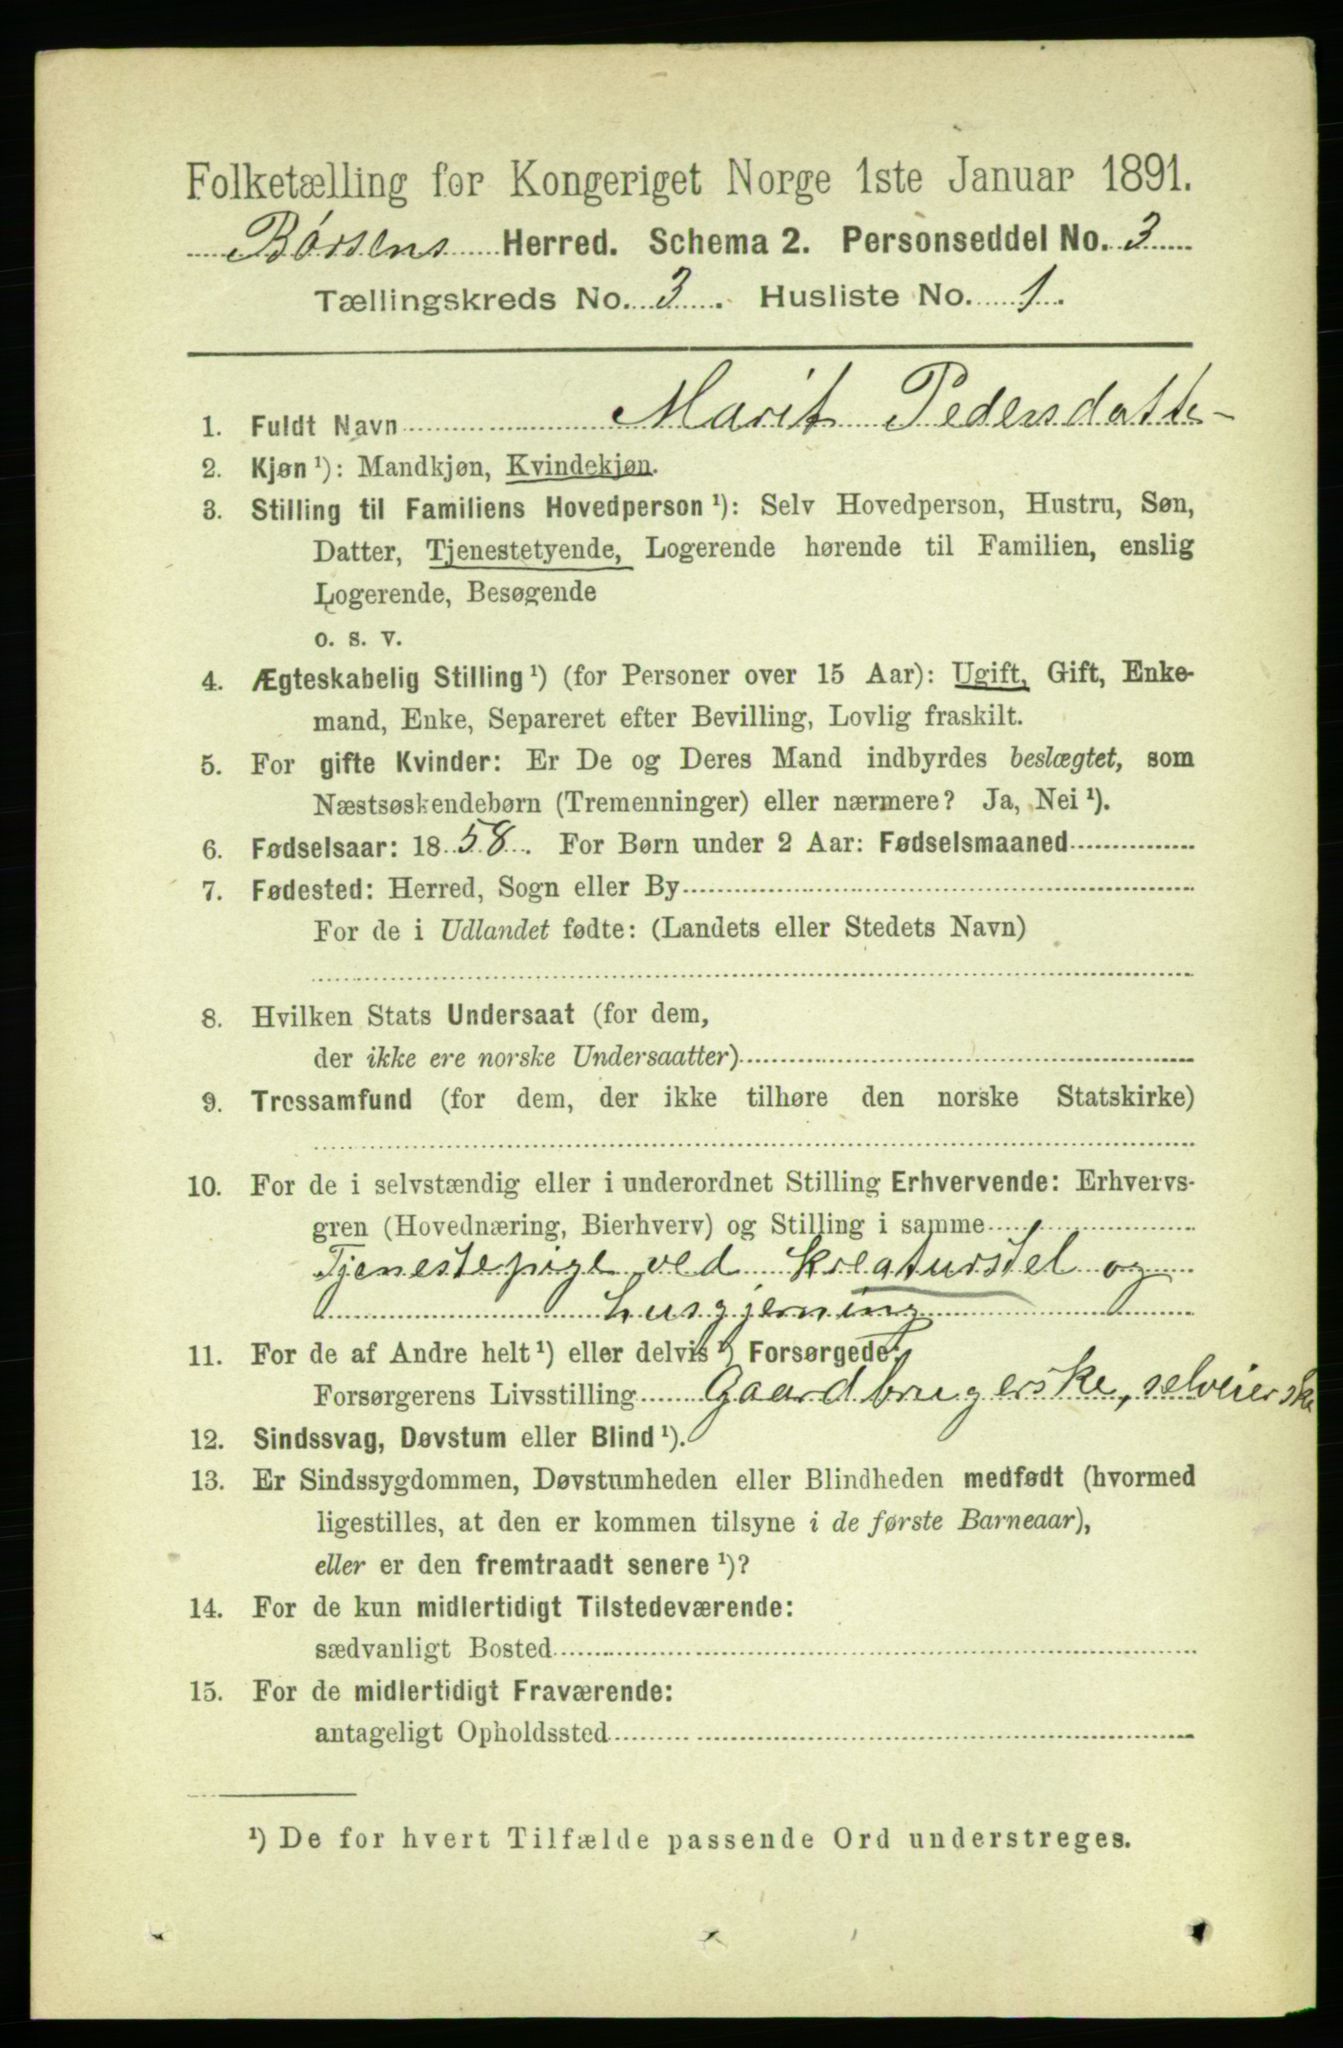 Folketælling for Kongeriget Norge 1ste Januar 1891.
Børsens Herred. Schema 2. Personseddel No. 3
Tællingskreds No. 3. Husliste No. 1.
1. Fuldt Navn Marit Pedersdatte-
2. Kjøn ¹): Mandkjøn, Kvindekjøn.
3. Stilling til Familiens Hovedperson ¹): Selv Hovedperson, Hustru, Søn,
Datter, Tjenestetyende, Logerende hørende til Familien, enslig
Logerende, Besøgende
o. s. v.
4. Ægteskabelig Stilling ¹) (for Personer over 15 Aar): Ugift, Gift, Enke-
mand, Enke, Separeret efter Bevilling, Lovlig fraskilt.
5. For gifte Kvinder: Er De og Deres Mand indbyrdes beslægtet, som
Næstsøskendebørn (Tremenninger) eller nærmere? Ja, Nei ¹).
6. Fødselsaar: 1858. For Børn under 2 Aar: Fødselsmaaned
7. Fødested: Herred, Sogn eller By
For de i Udlandet fødte: (Landets eller Stedets Navn)
8. Hvilken Stats Undersaat (for dem,
der ikke ere norske Undersaatter)
9. Trossamfund (for dem, der ikke tilhøre den norske Statskirke)
10. For de i selvstændig eller i underordnet Stilling Erhvervende: Erhvervs-
gren (Hovednæring, Bierhverv) og Stilling i samme
Tjenestepige ved kreaturstel og
husgjerning
11. For de af Andre helt ¹) eller delvis ¹) Forsørgede:
Forsørgerens Livsstilling Gaardbrugerske, selveierske
12. Sindssvag, Døvstum eller Blind ¹).
13. Er Sindssygdommen, Døvstumheden eller Blindheden medfødt (hvormed
ligestilles, at den er kommen tilsyne i de første Barneaar),
eller er den fremtraadt senere ¹)?
14. For de kun midlertidigt Tilstedeværende:
sædvanligt Bosted
15. For de midlertidigt Fraværende:
antageligt Opholdssted
¹) De for hvert Tilfælde passende Ord understreges.